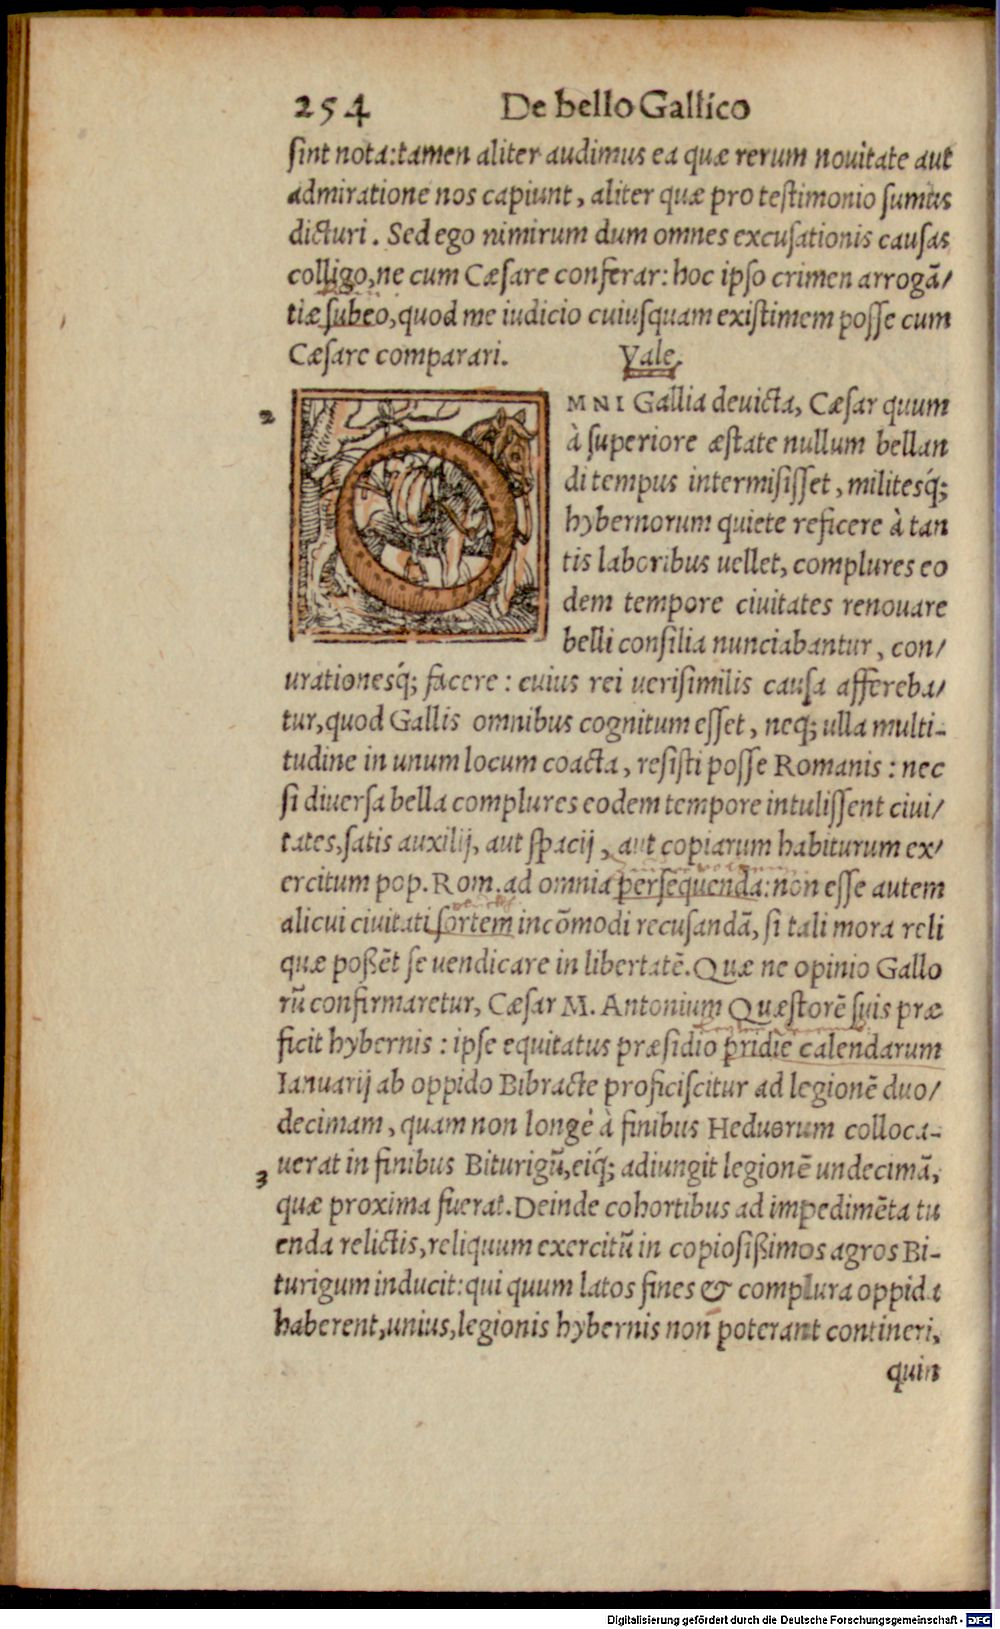 254 De bello Gallico
sint nota: tamen aliter audimus ea quæ rerum nouitate aut
admiratione nos capiunt, aliter quæ pro testimonio sumus
dicturi. Sed ego nimirum dum omnes excusationis causas
colligo, ne cum Cæsare conferar: hoc ipso crimen arrogã/
tiæ subeo, quod me iudicio cuiusquam existimem posse cum
Cæsare comparari. Vale.
2
OMNI Gallia deuicta, Cæsar quum
à superiore æstate nullum bellan
di tempus intermisisset, militesq́;
hybernorum quiete reficere à tan
tis laboribus uellet, complures eo
dem tempore ciuitates renouare
belli consilia nunciabantur, con/
iurationesq́; facere: cuius rei uerisimilis causa affereba/
tur, quod Gallis omnibus cognitum esset, neq; ulla multi-
tudine in unum locum coacta, resisti posse Romanis: nec
si diuersa bella complures eodem tempore intulissent ciui/
tates, satis auxilij, aut spacij, aut copiarum habiturum ex/
ercitum pop. Rom. ad omnia persequenda: non esse autem
alicui ciuitati sortem incõmodi recusandã, si tali mora reli
quæ poßẽt se uendicare in libertatẽ. Quæ ne opinio Gallo
rũ confirmaretur, Cæsar M. Antonium Quæstorẽ suis præ
ficit hybernis: ipse equitatus præsidio pridie calendarum
Ianuarij ab oppido Bibracte proficiscitur ad legionẽ duo/
decimam, quam non longè à finibus Heduorum colloca-
uerat in finibus Biturigũ, eiq́; adiungit legionẽ undecimã,
3
quæ proxima fuerat. Deinde cohortibus ad impedimẽta tu
enda relictis, reliquum exercitũ in copiosißimos agros Bi-
turigum inducit: qui quum latos fines & complura oppida
haberent, unius, legionis hybernis non poterant contineri,
quin
Digitalisierung gefördert durch die Deutsche Forschungsgemeinschaft - DFG